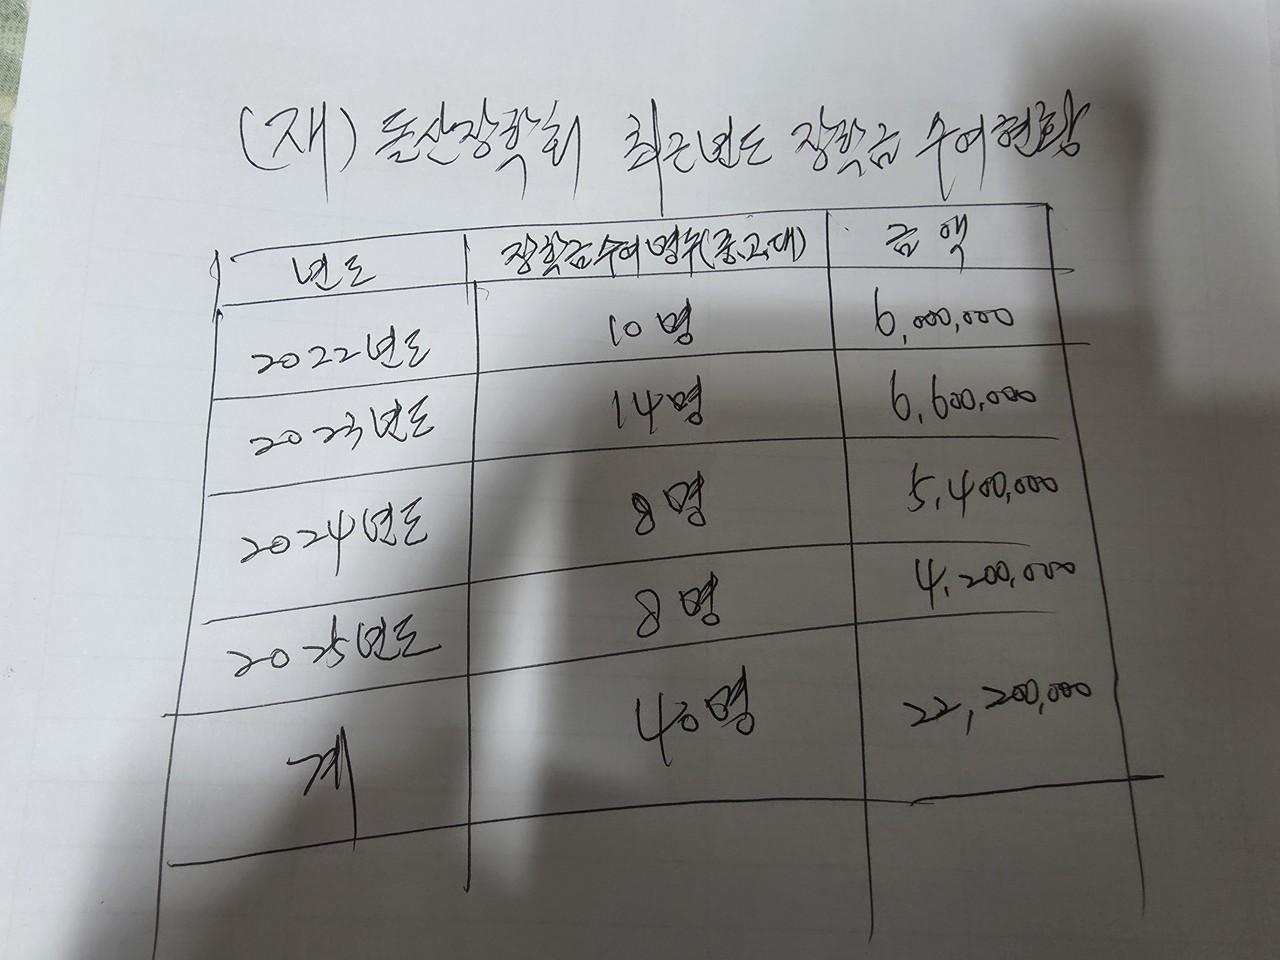 (재) 돌산장학회 최근년도 장학금 수여현황
년도 장학금수여명수(중,고,대) 금액
2022년도 10명 6,000,000
2023년도 14명 6,600,000
2024년도 8명 5,400,000
2025년도 8명 4,200,000
계 40명 22,200,000